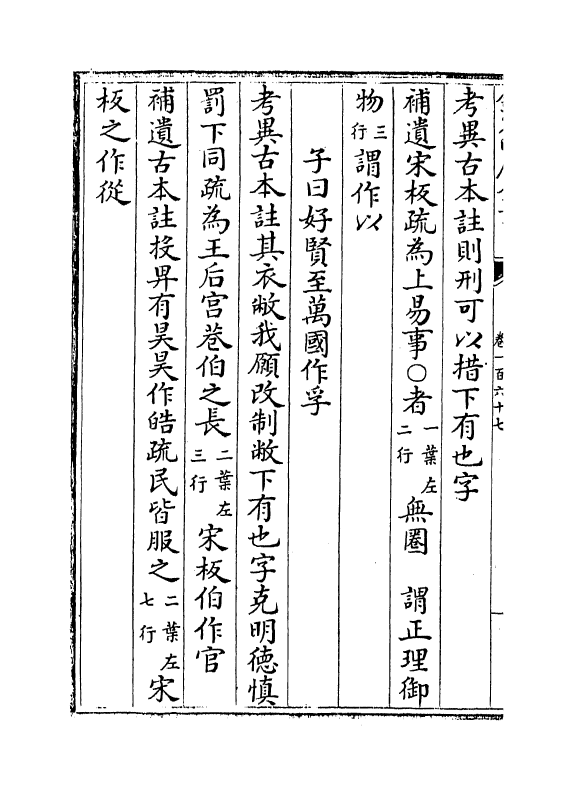 卷一百六十七
考異古本註則刑可以措下有也字
補遺宋板疏為上易事○者一葉左二行無圈 謂正理御
物三行謂作以
子曰好賢至萬國作孚
考異古本註其衣敝我願改制敝下有也字克明德慎
罰下同疏為王后宮巷伯之長二葉左三行宋板伯作官
補遺古本註投畀有昊昊作皓疏民皆服之二葉左七行宋
板之作從